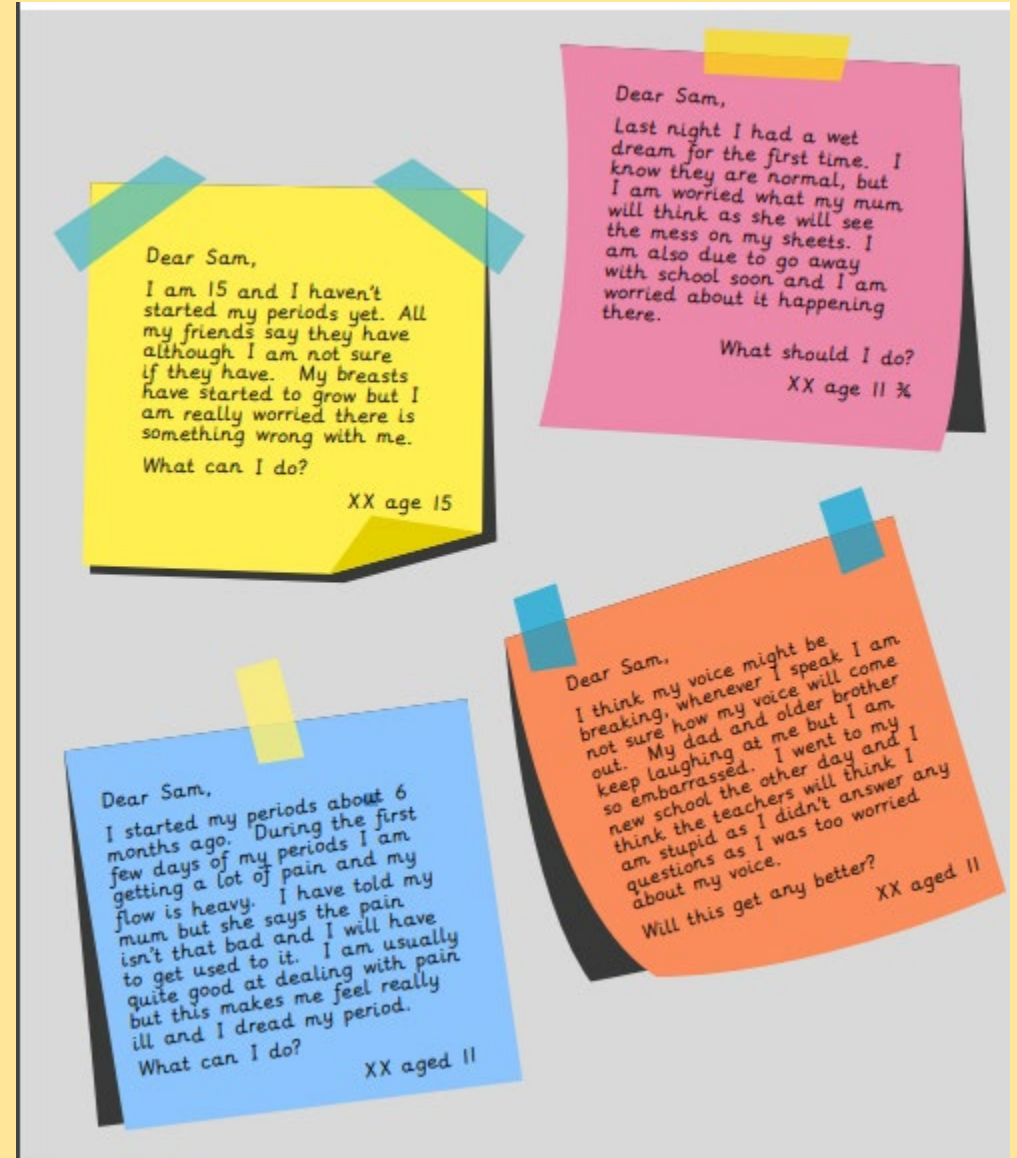 Dear Sam,
I am 15 and I haven't
started my periods yet. All
my friends say they have
although I am not sure
if they have. My breasts
have started to grow but I
am really worried there is
something wrong with me.
What can I do?
XX age 15
Dear Sam,
Last night I had a wet
dream for the first time. I
know they are normal, but
I am worried what my mum
will think as she will see
the mess on my sheets. I
am also due to go away
with school soon and I am
worried about it happening
there.
What should I do?
XX age 11 ¾
Dear Sam,
I started my periods about 6
months ago. During the first
few days of my periods I am
getting a lot of pain and my
flow is heavy. I have told my
mum but she says the pain
isn't that bad and I will have
to get used to it. I am usually
quite good at dealing with pain
but this makes me feel really
ill and I dread my period.
What can I do?
XX aged 11
Dear Sam,
I think my voice might be
breaking, whenever I speak I am
not sure how my voice will come
out. My dad and older brother
keep laughing at me but I am
so embarrassed. I went to my
new school the other day and I
think the teachers will think I
am stupid as I didn't answer any
questions as I was too worried
about my voice.
Will this get any better?
XX aged 11